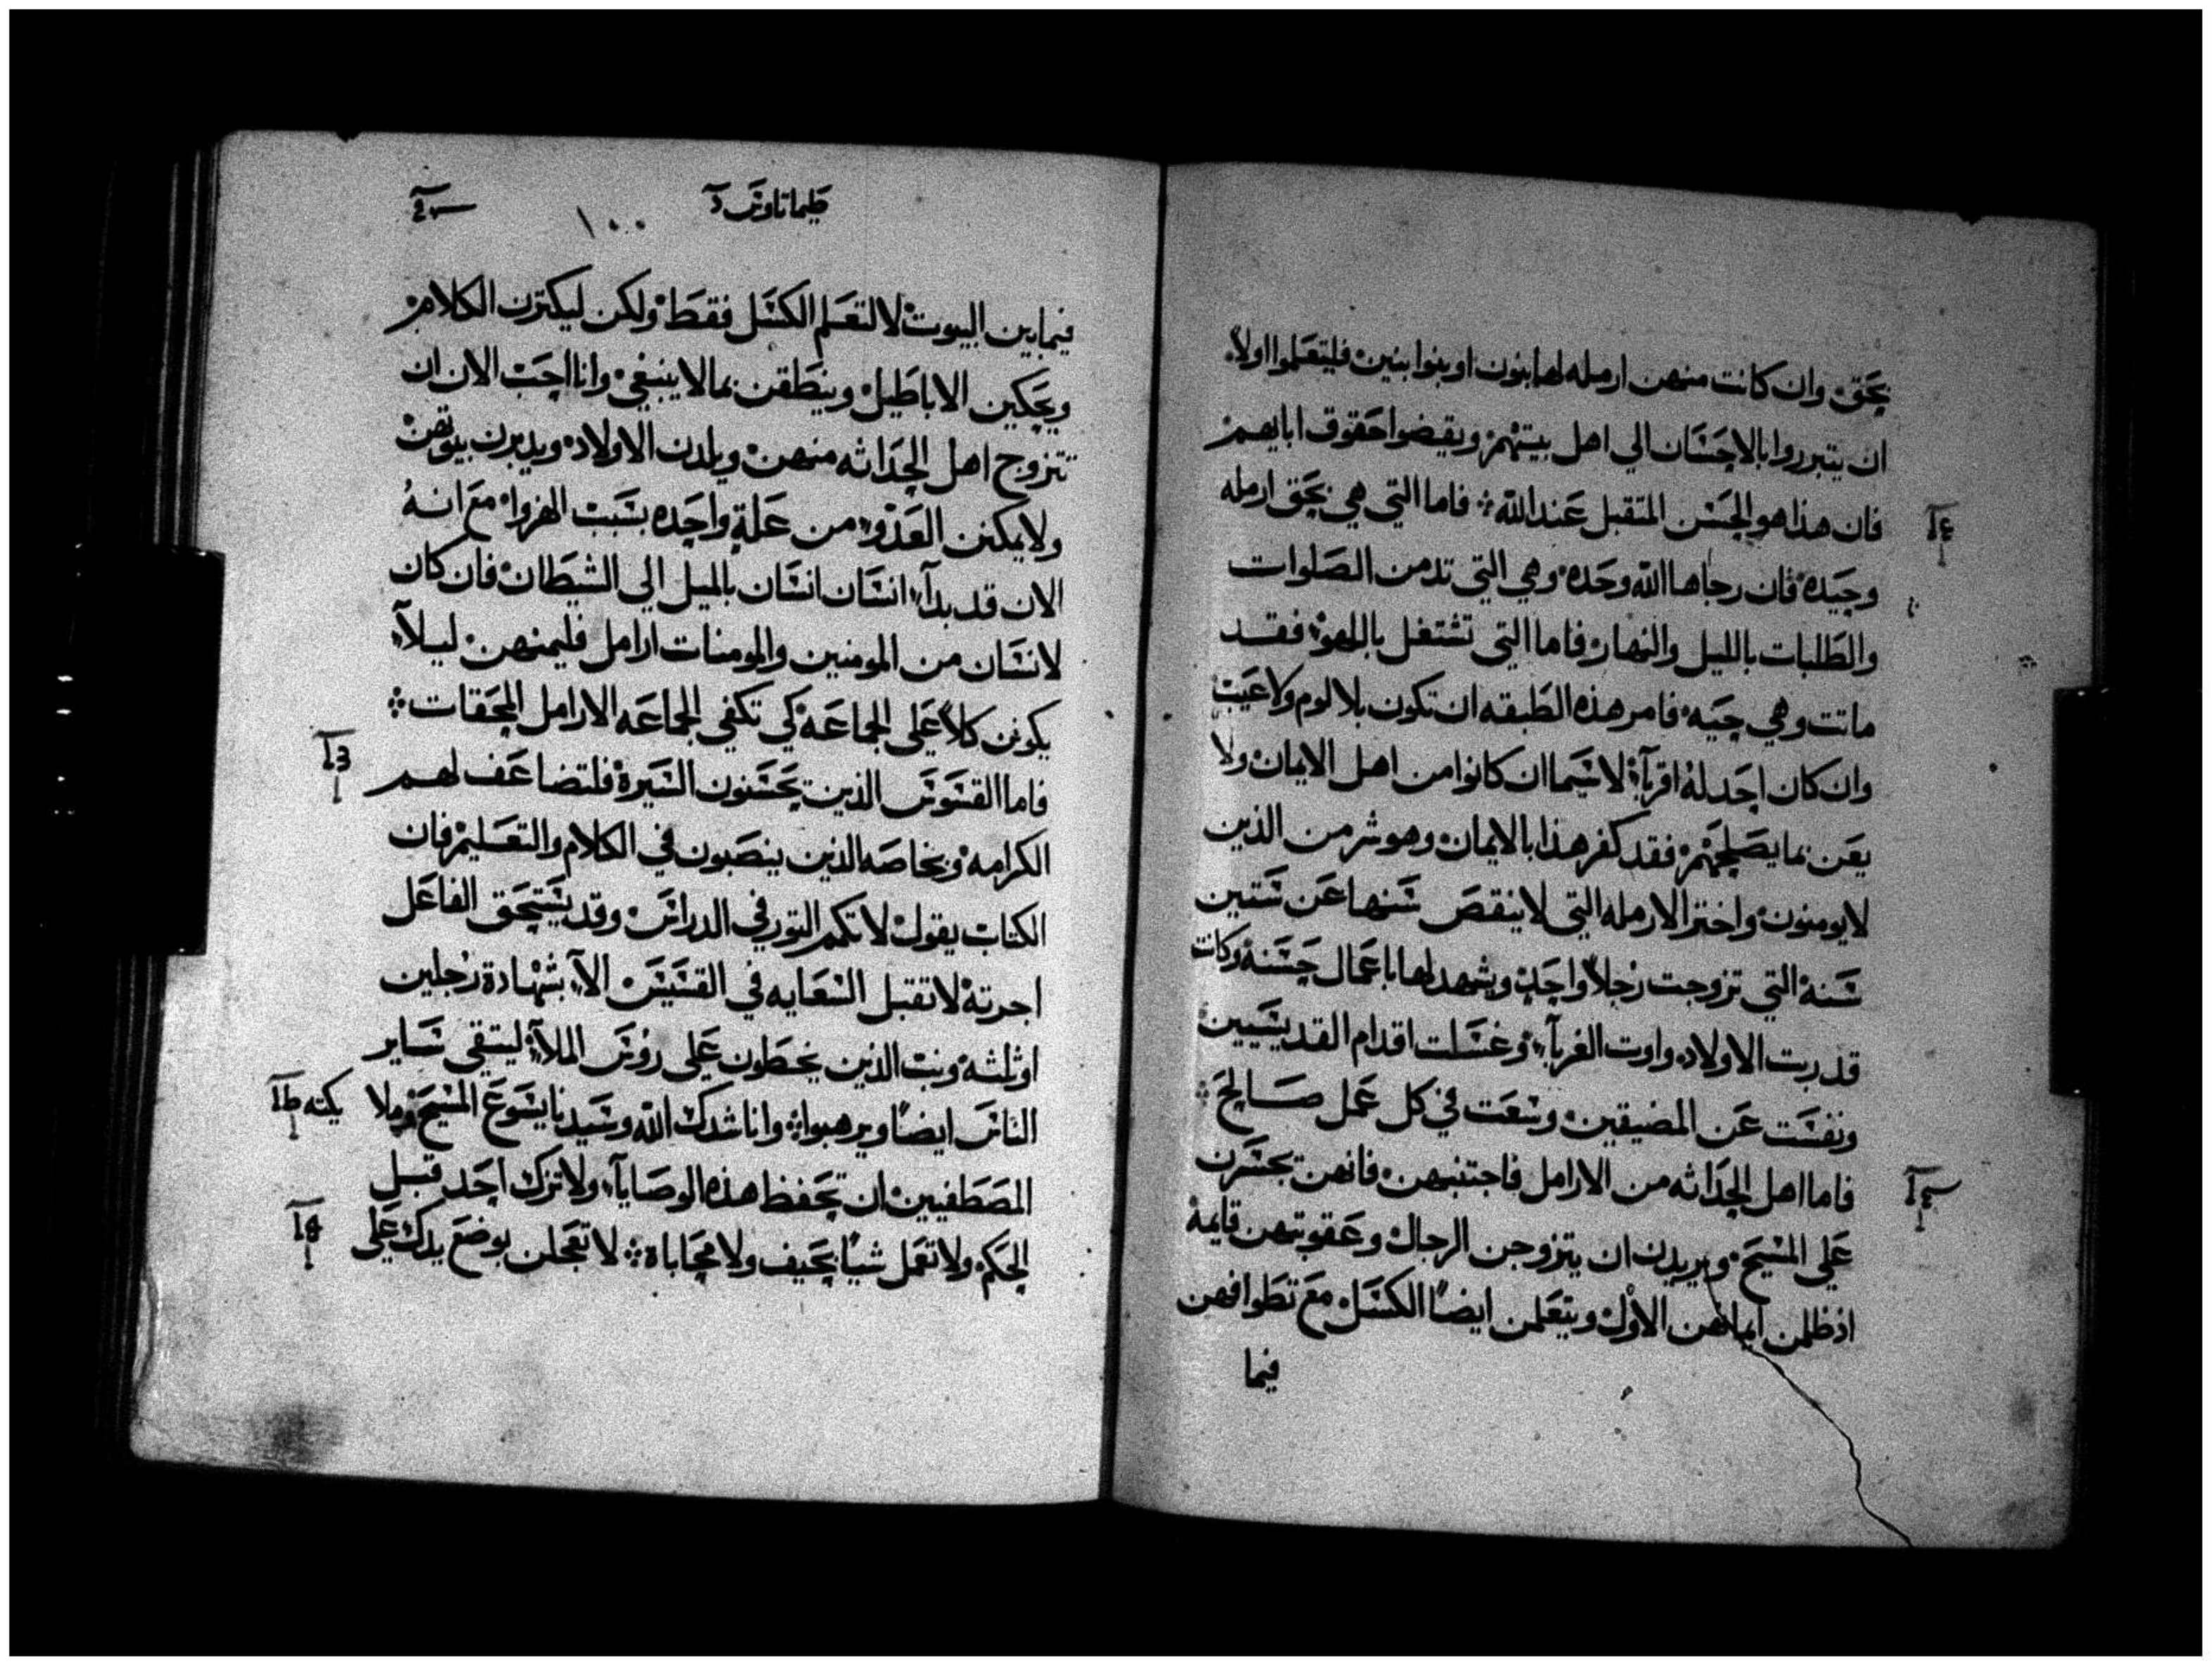 بحق وان كانت منهن ارمله لها بنون او بنوا بنين فليتعلموا اولاً
ان يتبرروا بالاحسان الي اهل بيتهم ويقضوا حقوق ابايهم
فان هذا هو الحسن المتقبل عند الله فاما التي هي بحق ارمله
وحيده فان رجاها الله وحده وهي التي تدمن الصلوات
والطلبات بالليل والنهار فاما التي تشتغل باللهو فقد
ماتت وهي حيه فامر هذه الطبقه ان تكون بلا لوم ولا عيب
وان كان احد له اقرباء لاسيما ان كانوا من اهل الايمان ولا
يعن بما يصلحهم فقد كفر هذا بالايمان وهو شر من الذين
لا يومنون واختر الارمله التي لا ينقص سنها عن ستين
سنة التي تزوجت رجلاً واحدٍ ويشهد لها باعمال حسنة وكانت
قد ربت الاولاد واوت الغربآء وغسلت اقدام القديسيين
ونفست عن المضيقين وسعت في كل عمل صالح
فاما اهل الحداثه من الارامل فاجتنبهن فانهن تجسرن
علي المسيح ويريدن ان يتزوجن الرجال وعقوبتهن قايمة
اذ ظلمن ايمانهن الاول ويتعلمن ايضاً الكسل مع تطوافهن
فيما
طيماتاوس
١٠٠
فيما بين البيوت لا لتعلم الكسل فقط ولكن ليكترن الكلام
ويحكين الاباطيل وينطقن بما لا ينبغي وانا احب الان ان
تتزوج اهل الحداثه منهن ويلدن الاولاد ويدبرن بيوتهن
ولا يمكنن العدو من علةٍ واحده بسبب الهزوا مع انهُ
الان قد بدآء انسان انسان بالميل الي الشيطان فان كان
لانسان من المومنين والمومنات ارامل فليمنهن ليلآء
يكونن كلاً علي الجماعه كي تكفي الجماعه الارامل المحقات
فاما القسوس الذين يحسنون السيرة فلتضاعف لهم
الكرامه وبخاصه الذين ينصبون في الكلام والتعليم فان
الكتاب يقول لا تكمم التور في الدراس وقد يستحق الفاعل
اجرته لا تقبل السعايه في القسيس الآء بشهادة رجلين
او ثلثه ونب الذين يخطون علي روس الملآء ليتقي ساير
الناس ايضاً ويرهبوا وانا شدك الله وسيدنا يسوع المسيح وملا يكته
المصطفيين ان تحفظ هذه الوصايآء ولا تترك احد قبل
الحكم ولا تعمل شياً بحيف ولا محاباة لا تعجلن بوضع يدك علي